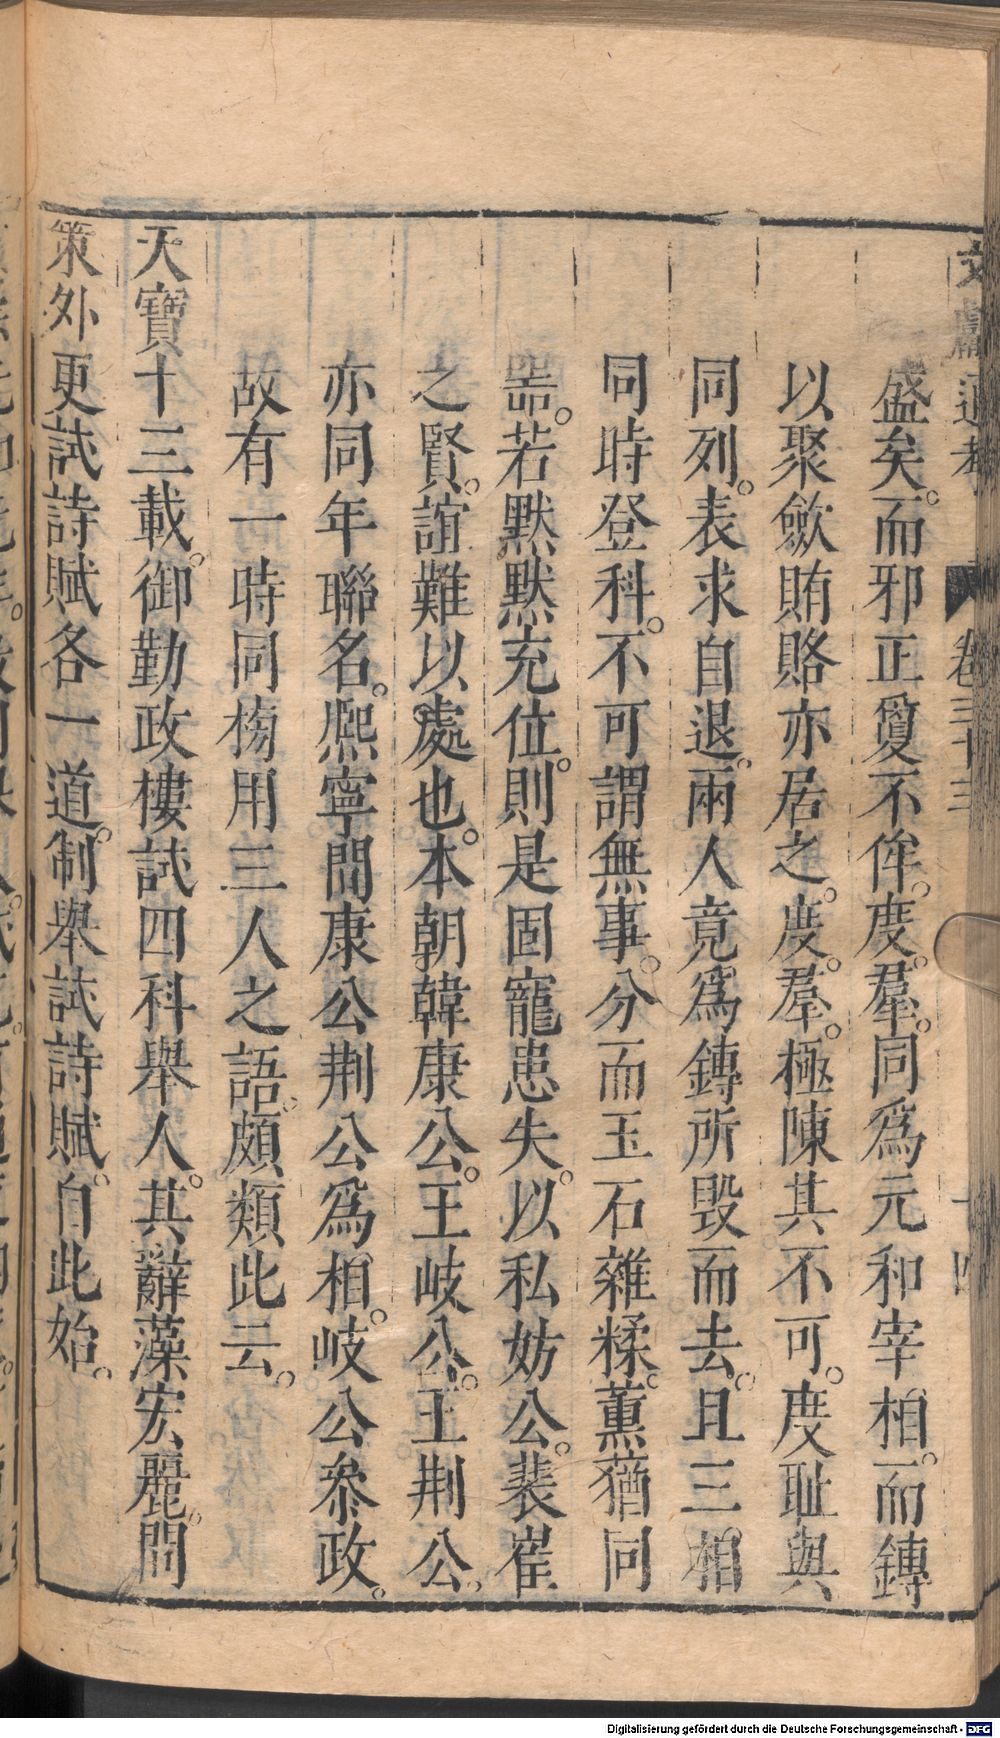 文獻通考 卷三十三 十四
盛矣。而邪正敻不侔。度。羣。同爲元和宰相。而鏄
以聚歛賄賂亦居之。度。羣。極陳其不可。度耻與
同列。表求自退。兩人竟爲鏄所毀而去。且三相
同時登科。不可謂無事。分而玉石雜糅。薰蕕同
噐。若默默充位。則是固寵患失。以私妨公。裴崔
之賢。誼難以處也。本朝韓康公。王岐公。王荆公。
亦同年聯名。熈寧間康公荆公爲相。岐公參政。
故有一時同榜用三人之語。頗類此云。
天寶十三載。御勤政樓試四科舉人。其辭藻宏麗。問
策外更試詩賦各一道。制舉試詩賦。自此始。
Digitalisierung gefördert durch die Deutsche Forschungsgemeinschaft - DFG